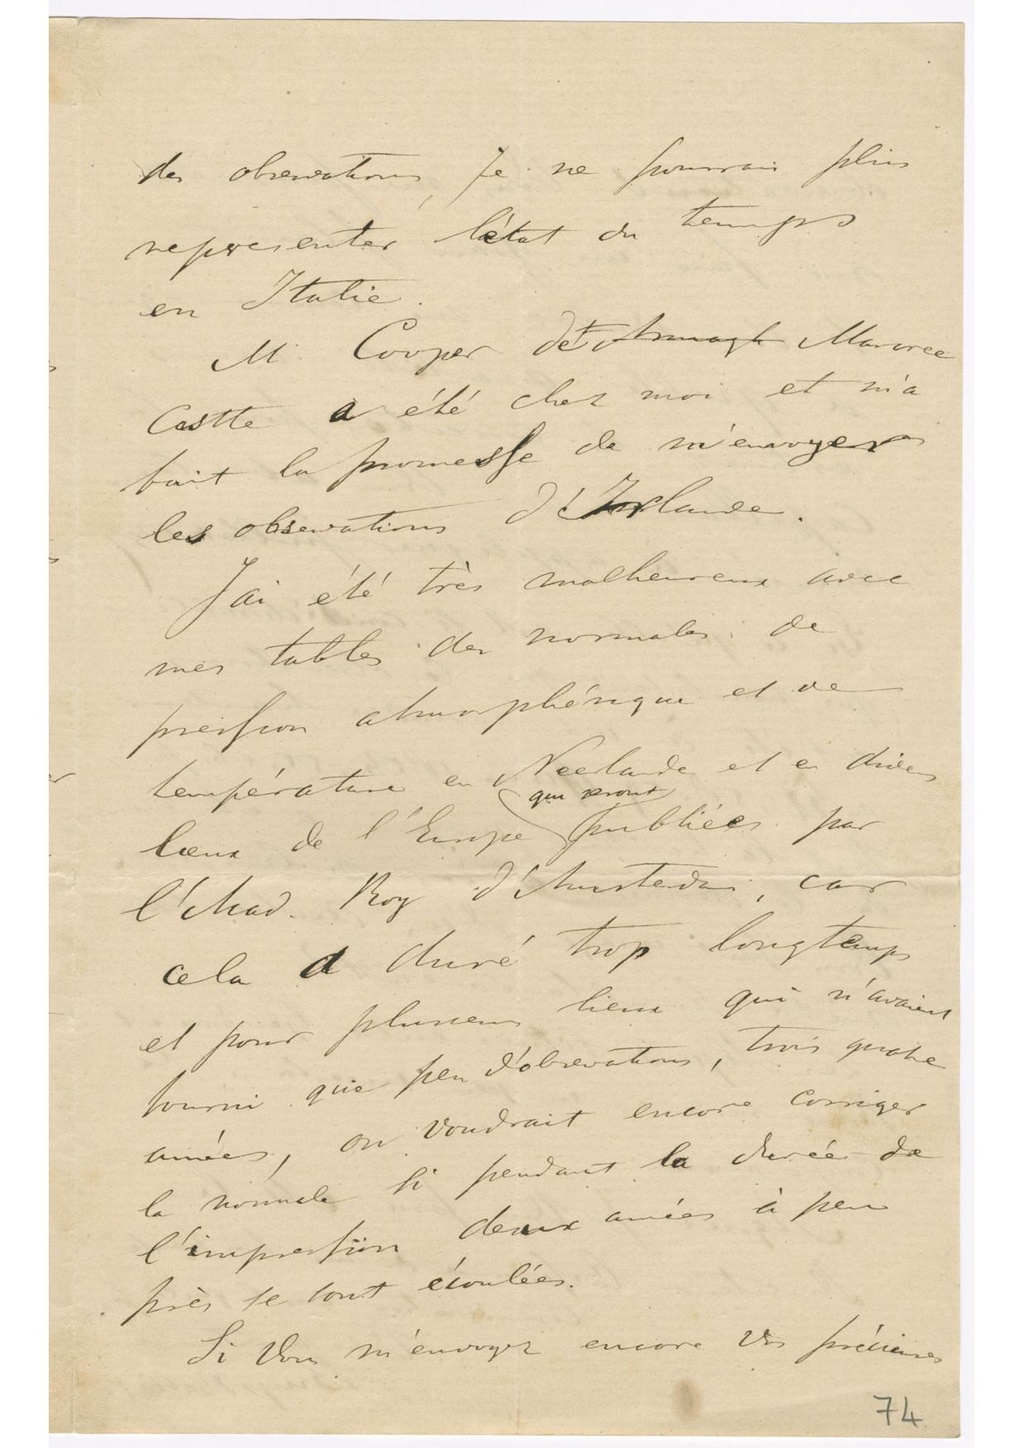 des observations, Je ne pourrais plus
representer l'état du temps
en Italie.
M. Cooper de Armagh Mavoree
Castle a été chez moi et m'a
fait la promesse de m'envoyer
les observations d'Irlande.
J'ai été très malheureux avec
mes tables des normales de
pression atmosphérique et de
température en Neerlande et en divers
lieux de l'Europe qui seront publiées par
l'Acad. Roy d'Amsterdam, car
cela a duré trop longtemps
et pour plusieurs lieux qui n'avaient
fourni que peu d'observations, trois quatre
années, on voudrait encore corriger
la normale si pendant la durée de
l'impression deux années à peu
près se sont écoulées.
Si Vous m'envoyez encore vos précieuses
74